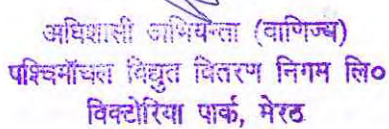 अधिशासी अभियन्ता (वाणिज्य)
पश्चिमॉचल विद्युत वितरण निगम लि०
विक्टोरिया पार्क, मेरठ